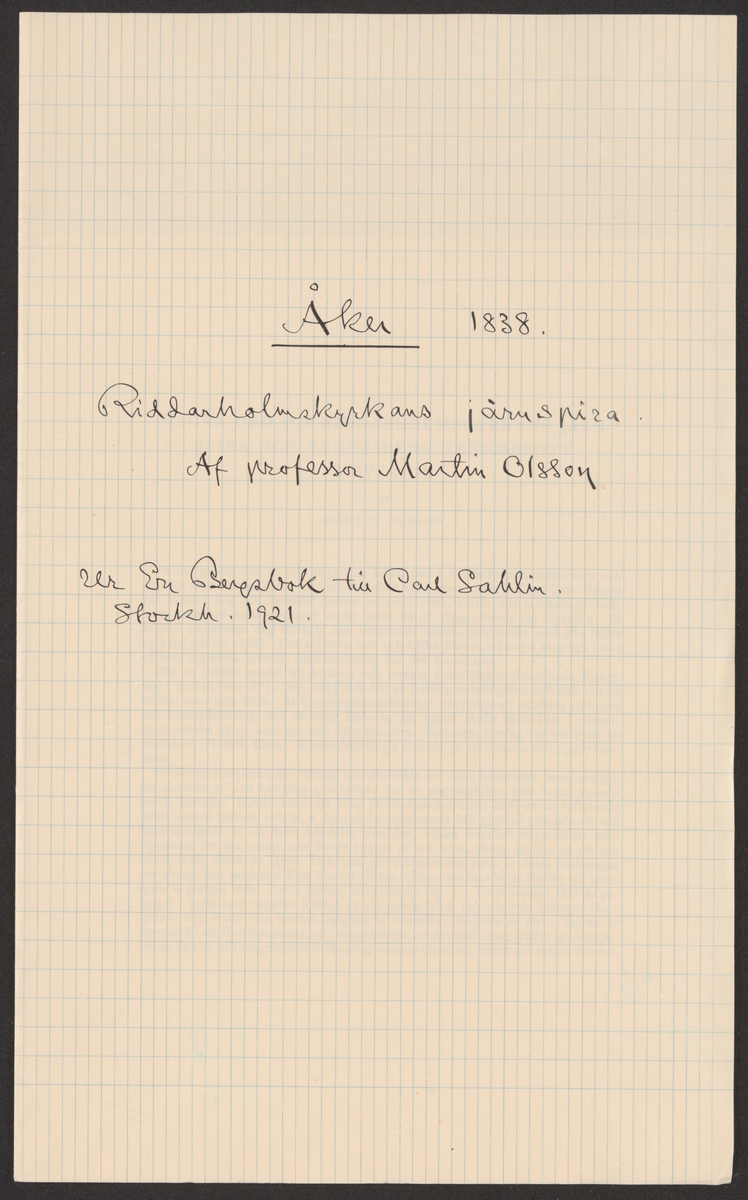 Åker 1838.
Riddarholmskyrkans järnspira.
Af professor Martin Olsson
Ur En Bergsbok till Carl Sahlin.
Stockh. 1921.